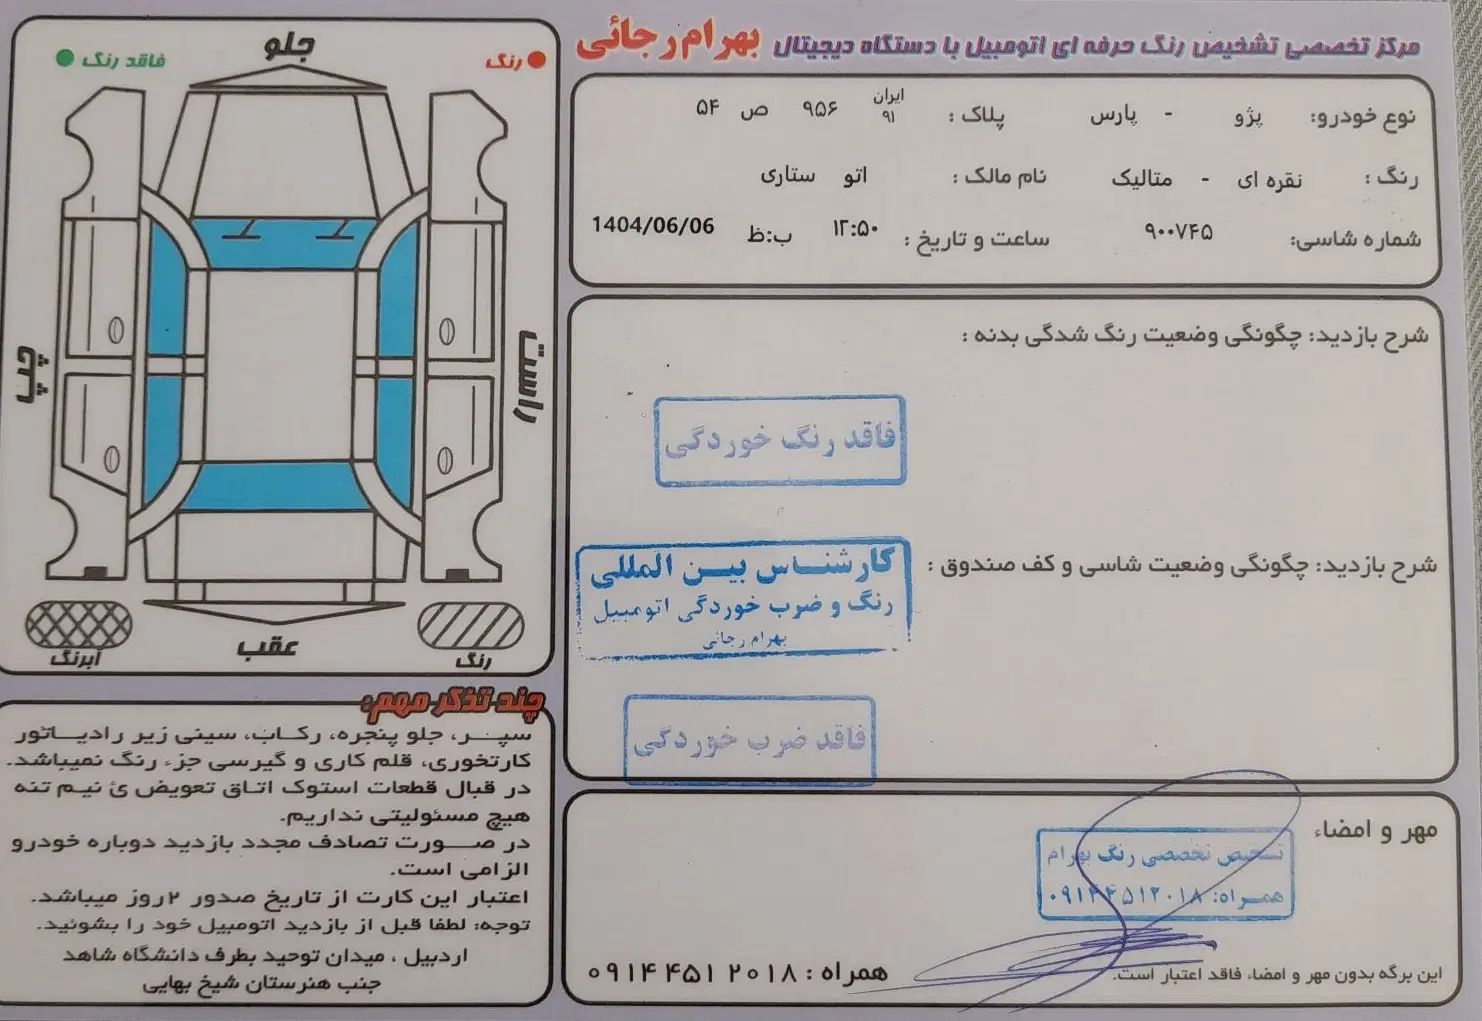 مرکز تخصصی تشخیص رنگ حرفه ای اتومبیل با دستگاه دیجیتال بهرام رجائی
نوع خودرو: پژو - پارس پلاک : ایران ۹۱ ۹۵۶ ص ۵۴
رنگ : نقره ای - متالیک نام مالک : اتو ستاری
شماره شاسی: ۹۰۰۷۴۵ ساعت و تاریخ : ۱۲:۵۰ ب:ظ 1404/06/06
شرح بازدید: چگونگی وضعیت رنگ شدگی بدنه :
فاقد رنگ خوردگی
شرح بازدید: چگونگی وضعیت شاسی و کف صندوق :
کارشناس بین المللی
رنگ و ضرب خوردگی اتومبیل
بهرام رجائی
فاقد ضرب خوردگی
مهر و امضاء
تشخیص تخصصی رنگ بهرام
همراه: ۰۹۱۴۴۵۱۲۰۱۸
این برگه بدون مهر و امضاء فاقد اعتبار است.
همراه : ۰۹۱۴ ۴۵۱ ۲۰۱۸
رنگ
فاقد رنگ
جلو
راست
چپ
عقب
رنگ
آبرنگ
چند تذکر مهم:
سپر، جلو پنجره، رکاب، سینی زیر رادیاتور
کارتخوری، قلم کاری و گیرسی جزء رنگ نمیباشد.
در قبال قطعات استوک اتاق تعویض ئ نیم تنه
هیچ مسئولیتی نداریم.
در صورت تصادف مجدد بازدید دوباره خودرو
الزامی است.
اعتبار این کارت از تاریخ صدور ۲ روز میباشد.
توجه: لطفا قبل از بازدید اتومبیل خود را بشوئید.
اردبیل ، میدان توحید بطرف دانشگاه شاهد
جنب هنرستان شیخ بهایی